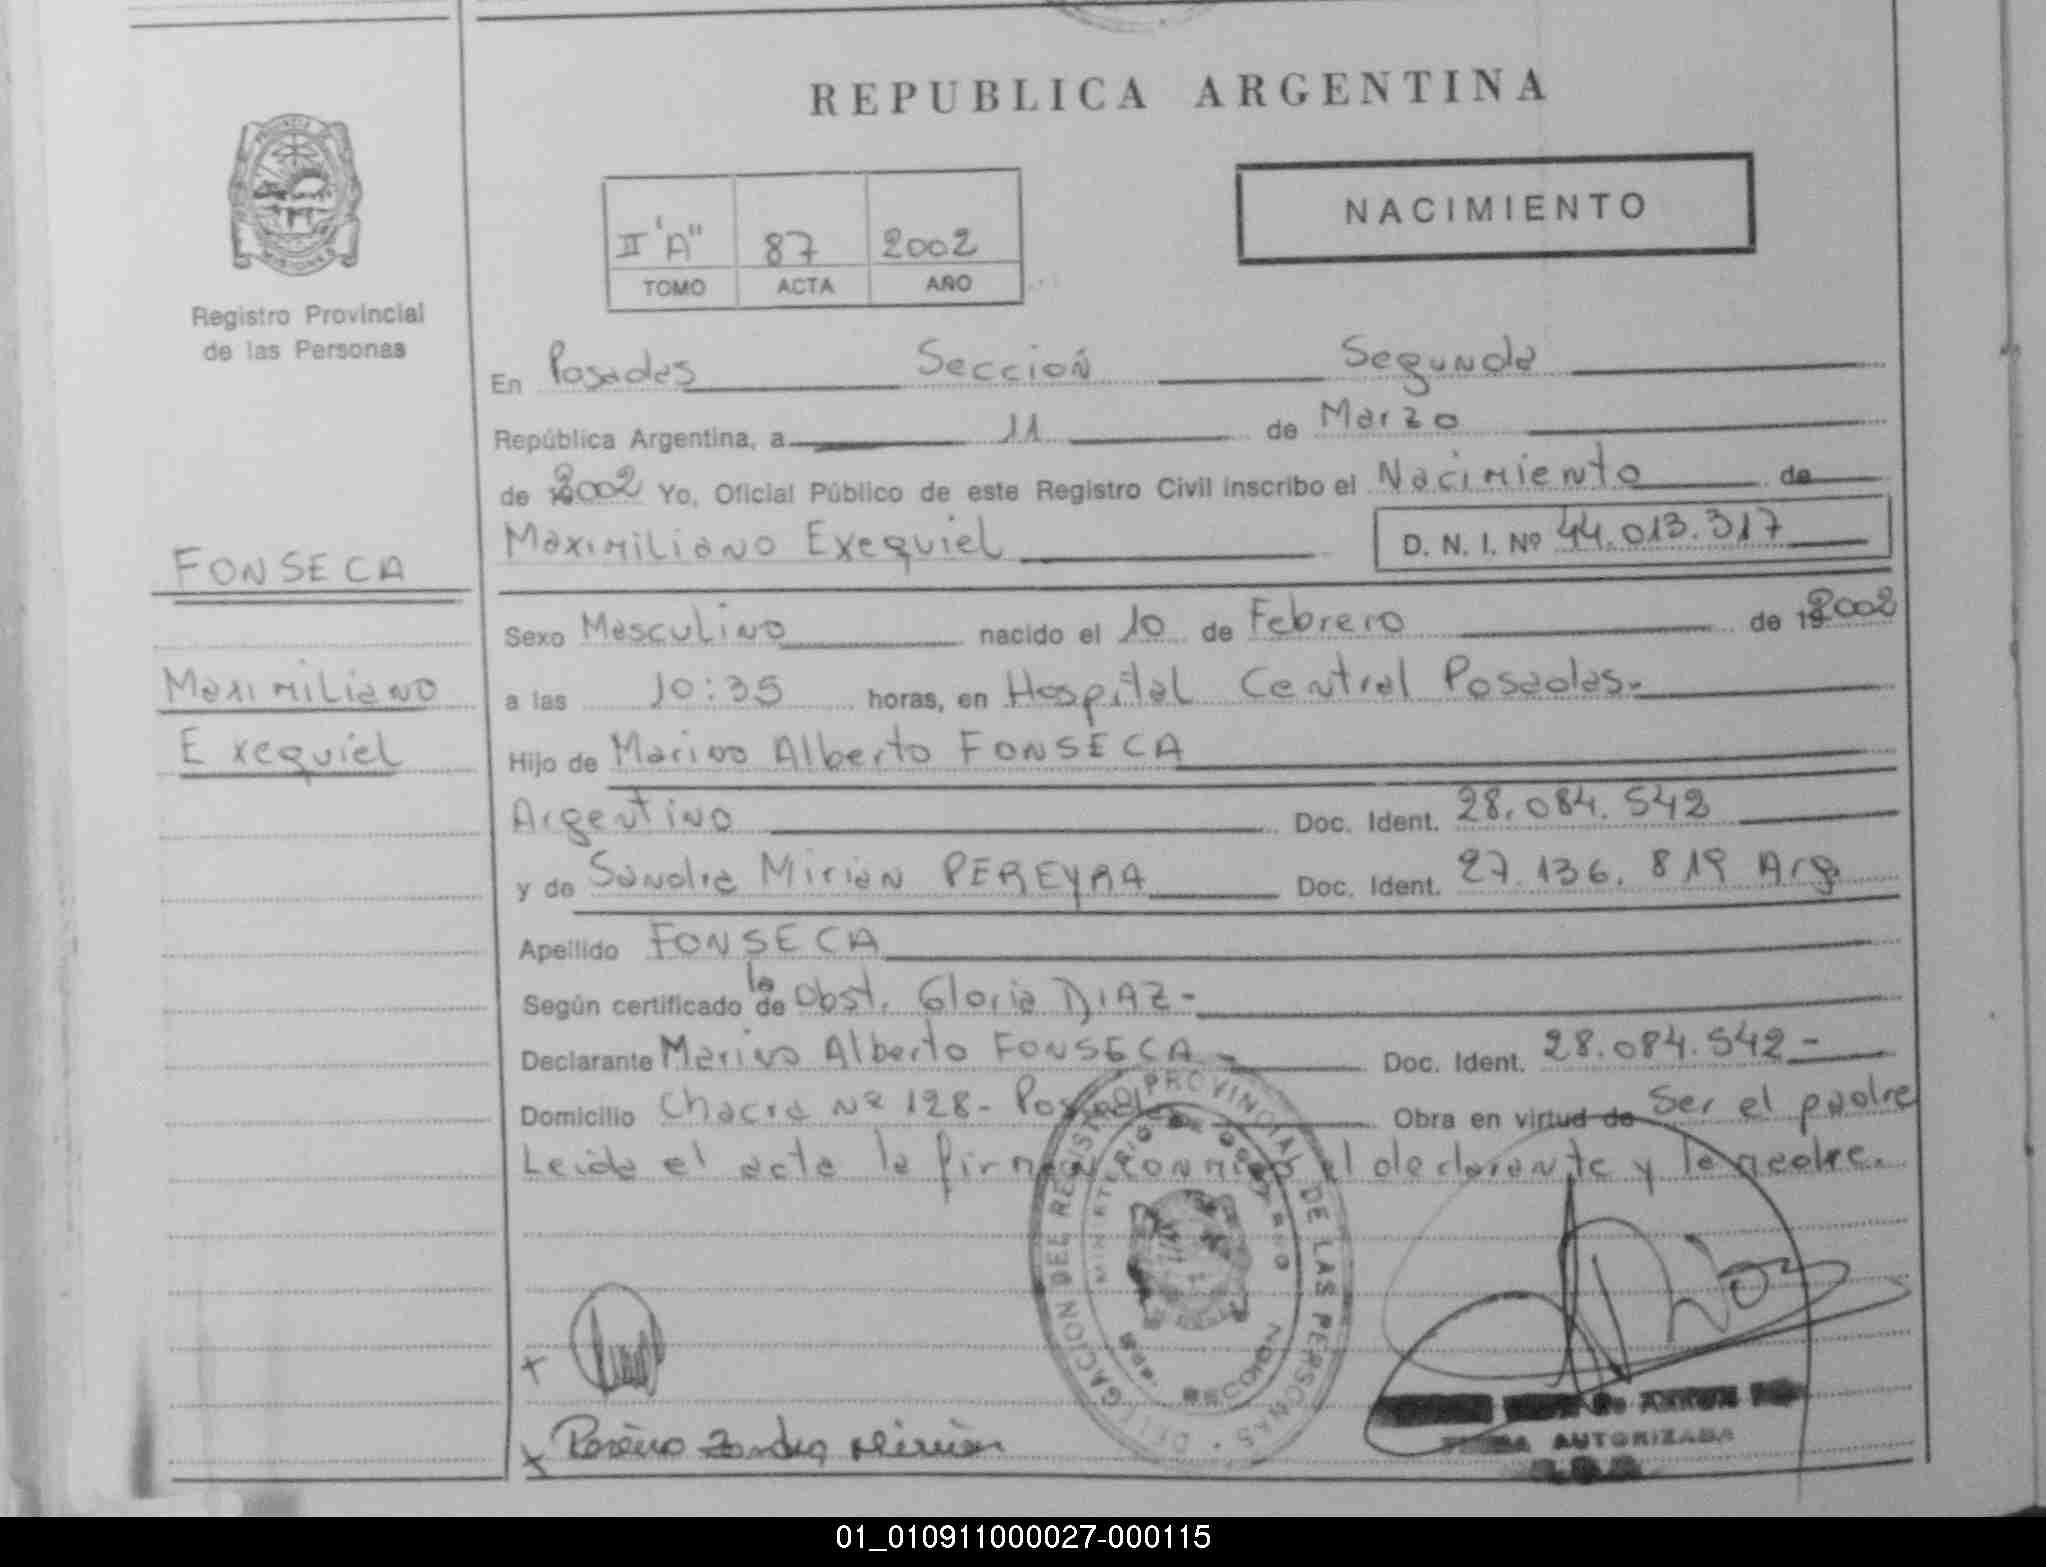 REPUBLICA ARGENTINA
NACIMIENTO
II "A" 87 2002
TOMO ACTA AÑO
Registro Provincial
de las Personas
En Posadas Sección Segunda
República Argentina, a 11 de Marzo
de 2002 Yo, Oficial Público de este Registro Civil inscribo el Nacimiento de
Maximiliano Exequiel D. N. I. Nº 44.013.317
FONSECA
Maximiliano
Exequiel
Sexo Masculino nacido el 10 de Febrero de 2002
a las 10:35 horas, en Hospital Central Posadas.
Hijo de Marino Alberto FONSECA
Argentino Doc. Ident. 28.084.542
y de Sandra Mirian PEREYRA Doc. Ident. 27.136.819 Arg
Apellido FONSECA
Según certificado de la Obst. Gloria DIAZ-
Declarante Marino Alberto FONSECA- Doc. Ident. 28.084.542-
Domicilio Chacra Nº 128- Posadas Obra en virtud de Ser el padre
Leida el acta la firman conmigo el declarante y la madre.
DELEGACION DEL REGISTRO PROVINCIAL DE LAS PERSONAS
MINISTERIO DE GOBIERNO
x
x Sandra Mirian
FIRMA AUTORIZADA
01_010911000027-000115